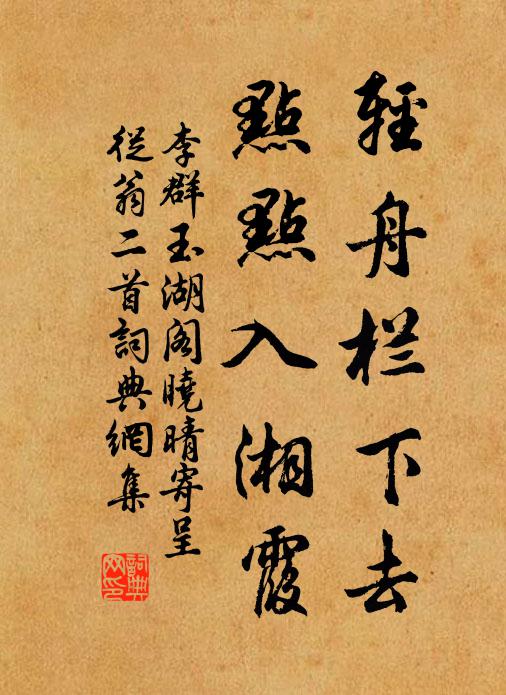 輕舟栏下去
點點入湘霞
李群玉湖阁曉晴寄呈
從翁二首詞典網集
詞典网印